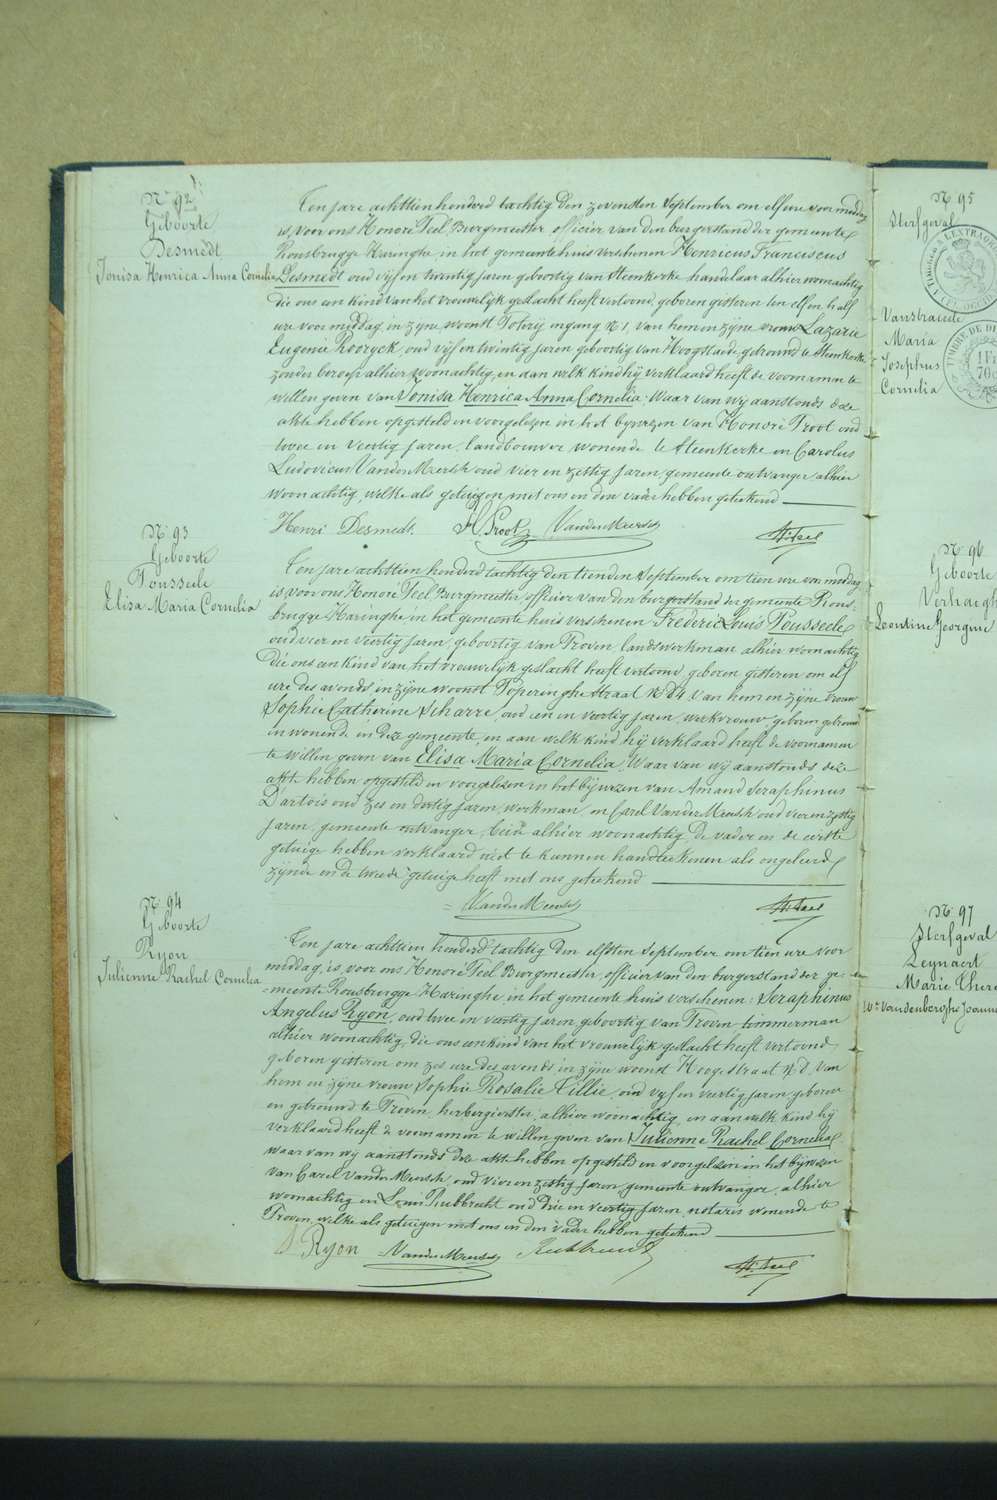 N° 92
Geboorte
Desmedt
Jonisa Henrica Anna Cornelia
Ten jare achttien honderd tachtig den zevensten September om elf ure voor middag
is, voor ons Honoré Teel Burgmeester officier van den burgerstand der gemeente
Rousbrugge Haringhe, in het gemeentehuis verschenen Henricus Franciscus
Desmedt oud vijf en twintig jaren geboortig van Steenkerke handelaar alhier woonachtig
die ons een kind van het vrouwelijk geslacht heeft vertoond, geboren gisteren ten elf en half
ure voor middag, in zyne woonst ingang N° 1, van hem en zyne vrouw Lazarie
Eugenie Rooryck, oud vijf en twintig jaren geboortig van Hoogstaede, getrouwd te Steenkerke
zonder beroep alhier woonachtig, en aan welk kind hij verklaard heeft de voornamen te
willen geven van Jonisa Henrica Anna Cornelia. Waar van wij aanstonds deze
akte hebben opgesteld en voorgelezen in het bywezen van Honoré Proot oud
twee en veertig jaren, landbouwer wonende te Steenkerke en Carolus
Ludovicus VanderMeersch oud vier en zestig jaren, gemeente ontvanger alhier
woonachtig, welke als getuigen met ons en den vader hebben geteekend
Henri Desmedt. H. Proot VanderMeersch H. Teel
N° 93
Geboorte
Pousseele
Elisa Maria Cornelia
Ten jare achttien honderd tachtig den tienden September om tien ure voor middag
is, voor ons Honoré Teel Burgmeester officier van den burgerstand der gemeente Rous-
brugge Haringhe in het gemeente huis verschenen Frederic Louis Pousseele
oud vier en veertig jaren, geboortig van Proven landswerkman alhier woonachtig
Die ons een kind van het vrouwelijk geslacht heeft vertoond, geboren gisteren om elf
ure des avonds in zijne woonst Poperinghe straat N° 84 van hem en zyne vrouw
Sophie Catherine Scharre, oud een en veertig jaren, werkvrouw, geboren getrouwd
en wonende in deze gemeente, en aan welk kind hij verklaard heeft de voornamen
te willen geven van Elisa Maria Cornelia. Waar van wij aanstonds deze
akte hebben opgesteld en voorgelezen in het bijwezen van Amand Seraphinus
D'artois oud zes en dertig jaren, werkman en Carel VanderMeersch oud vier en zestig
jaren, gemeente ontvanger, beide alhier woonachtig, De vader en de eerste
getuige hebben verklaard niet te kunnen handteekenen als ongeleerd
zijnde en de tweede getuige heeft met ons geteekend
VanderMeersch H. Teel
N° 94
Geboorte
Ryon
Julienne Rachel Cornelia
Ten jare achttien honderd tachtig den elfsten September om tien ure voor
middag, is, voor ons Honoré Teel Burgmeester, officier van den burgerstand der ge-
meente Rousbrugge Haringhe, in het gemeente huis verschenen: Seraphinus
Angelus Ryon, oud twee en veertig jaren, geboortig van Proven timmerman
alhier woonachtig, die ons een kind van het vrouwelijk geslacht heeft vertoond
geboren gisteren om zes ure des avonds in zyne woonst Hooge straat N° 8 van
hem en zyne vrouw Sophie Rosalie Tillie, oud vijf en veertig jaren geboren
en getrouwd te Proven herbergierster, alhier woonachtig, en aan welk kind hij
verklaard heeft de voornamen te willen geven van Julienne Rachel Cornelia,
waar van wij aanstonds deze akte hebben opgesteld en voorgelezen in het bijwezen
van Carel VanderMeersch, oud vier en zestig jaren, gemeente ontvanger, alhier
woonachtig en Louis Rubbrecht oud drie en veertig jaren, notaris wonende te
Proven, welke als getuigen met ons en den vader hebben geteekend
S. Ryon VanderMeersch Rubbrecht H. Teel
N° 95
Sterfgeval
Vanstraceele
Maria
Josephus
Cornelia
N° 96
Geboorte
Verhaegh
Leontine Georgine
N° 97
Sterfgeval
Leynaert
Marie There
We Vandenberghe Joannes